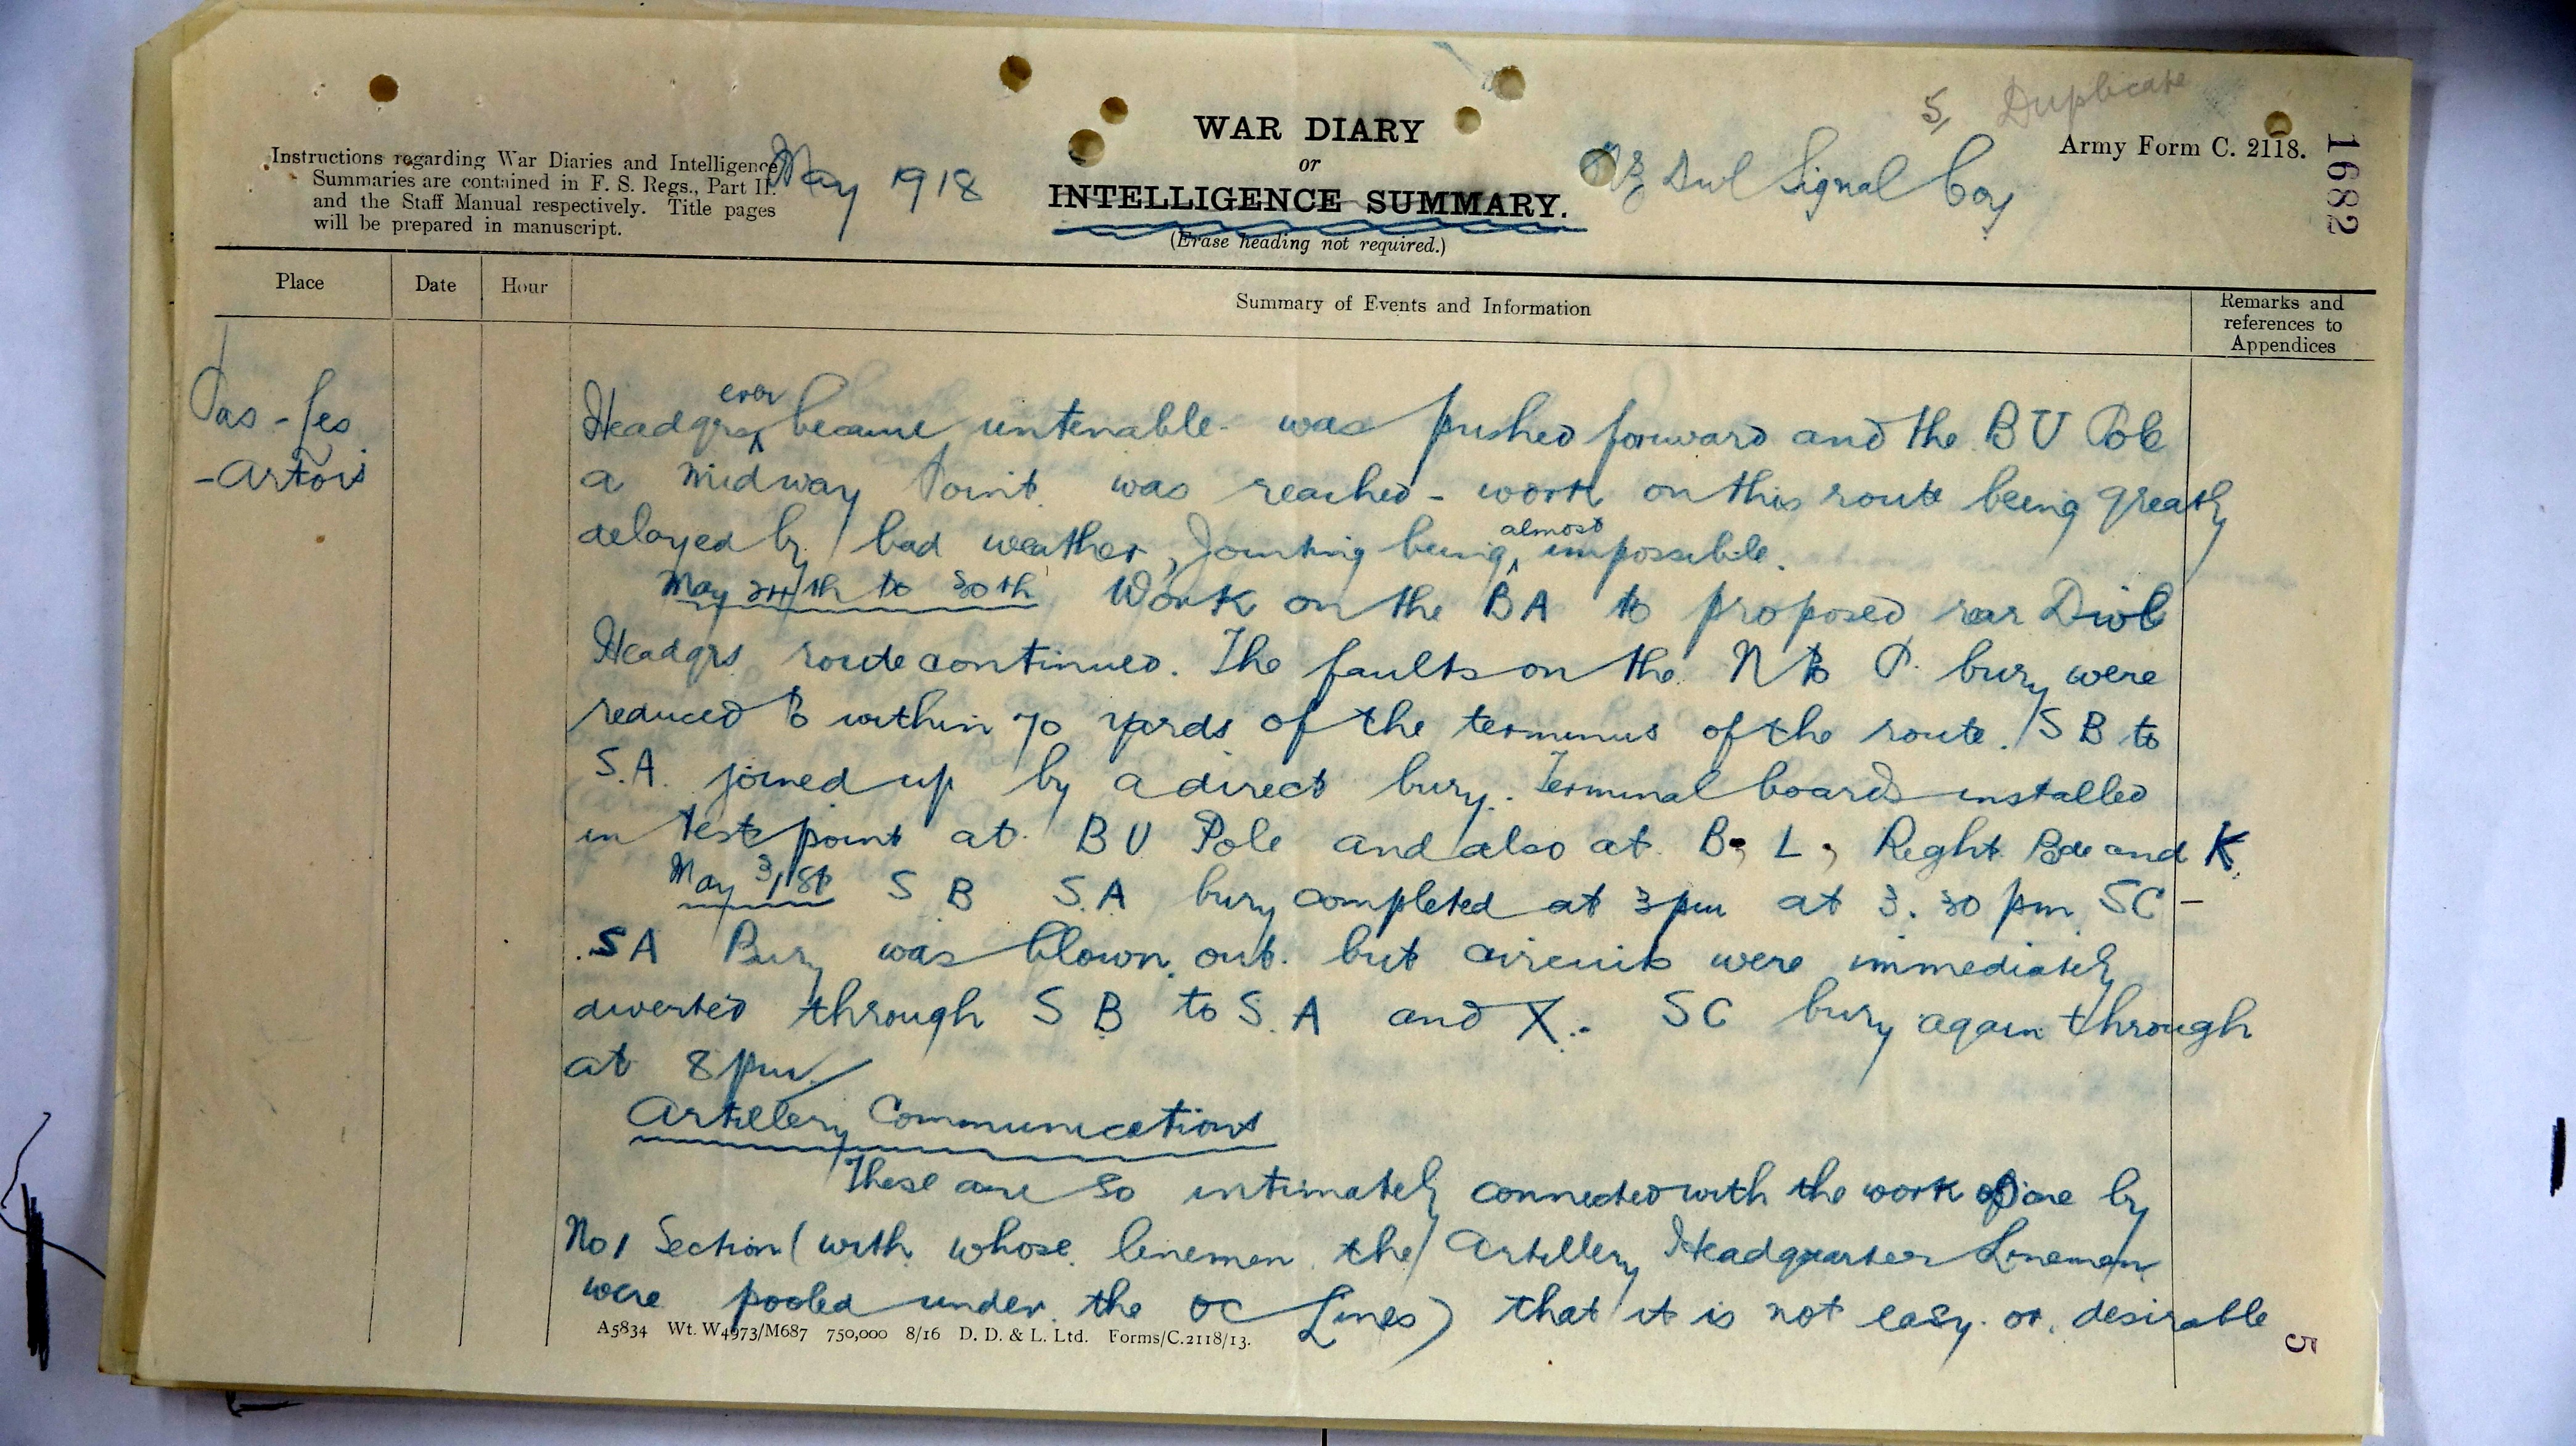 5, Duplicate
WAR DIARY
or
INTELLIGENCE SUMMARY.
(Erase heading not required.)
Army Form C. 2118.
1682
Instructions regarding War Diaries and Intelligence
Summaries are contained in F. S. Regs., Part II.
and the Staff Manual respectively. Title pages
will be prepared in manuscript.
May 1918
NZ Divl Signal Coy
Place
Date
Hour
Summary of Events and Information
Remarks and
references to
Appendices
Pas-les
-Artois
Headqrs ever became untenable - was pushed forward and the BV Pole
a midway Point was reached - work on this route being greatly
delayed by bad weather, Jointing being almost impossible.
May 24th to 30th Work on the BA to proposed rear Divl
Headqrs route continued. The faults on the N to P bury were
reduced to within 70 yards of the terminus of the route. SB to
S.A. joined up by a direct bury. Terminal boards installed
in test point at BV Pole and also at B, L, Right Bde and K.
May 31st S B S.A bury completed at 3pm at 3.30 pm SC -
SA Bury was blown out but circuits were immediately
diverted through S B to S.A and X. SC bury again through
at 8pm
Artillery Communications
These are so intimately connected with the work done by
No 1 Section (with whose linemen the Artillery Headquarter Linemen
were pooled under the OC Lines) that it is not easy or desirable
A5834 Wt. W4973/M687 750,000 8/16 D. D. & L. Ltd. Forms/C.2118/13.
5